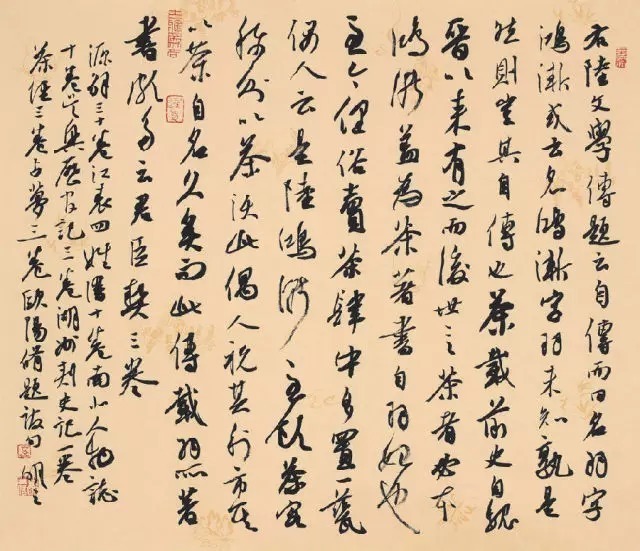 右陸文學傳題云自傳而曰名羽字
鴻漸或云名鴻漸字羽未知孰是
然則豈其自傳也茶載前史自魏
晉以來有之而後世言茶者必本
鴻漸蓋為茶著書自羽始也
至今俚俗賣茶肆中多置一甆
偶人云是陸鴻漸至飲茶客
稀則以茶沃此偶人祝其利市其
以茶自名久矣而此傳載羽所著
書頗多云君臣契三卷
源解三十卷江表四姓譜十卷南北人物誌
十卷吳興歷官記三卷湖州刺史記一卷
茶經三卷占夢三卷歐陽脩題跋句